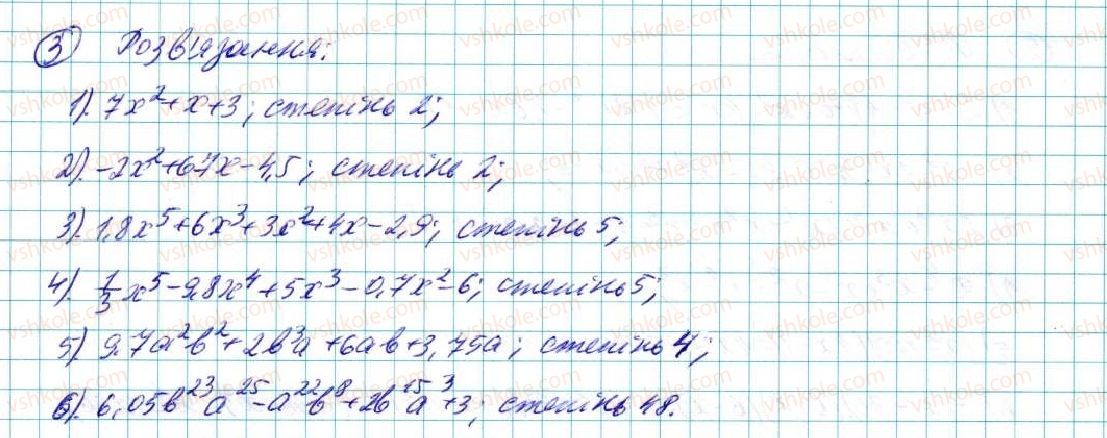 3 Розв'язання:
1). 7x² + x + 3; степінь 2;
2). -2x² + 67x - 4,5; степінь 2;
3). 1,8x⁵ + 6x³ + 3x² + 4x - 2,9; степінь 5;
4). 1/3 x⁵ - 9,8x⁴ + 5x³ - 0,7x² - 6; степінь 5;
5). 9,7a²b² + 2b³a + 6ab + 3,75a; степінь 4;
6). 6,05b²³a²⁵ - a²²b⁸ + 2b¹⁵a³ + 3; степінь 48.
vshkole.com